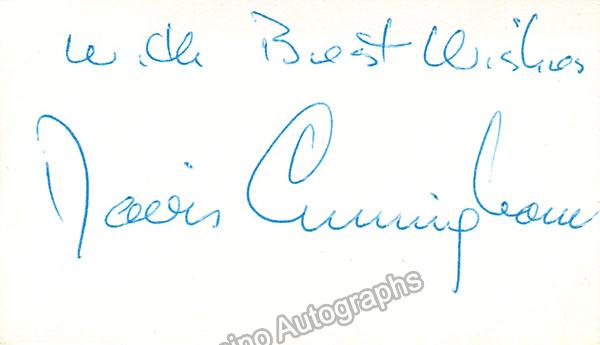 With Best Wishes
Davis Cunningham
ino Autographs